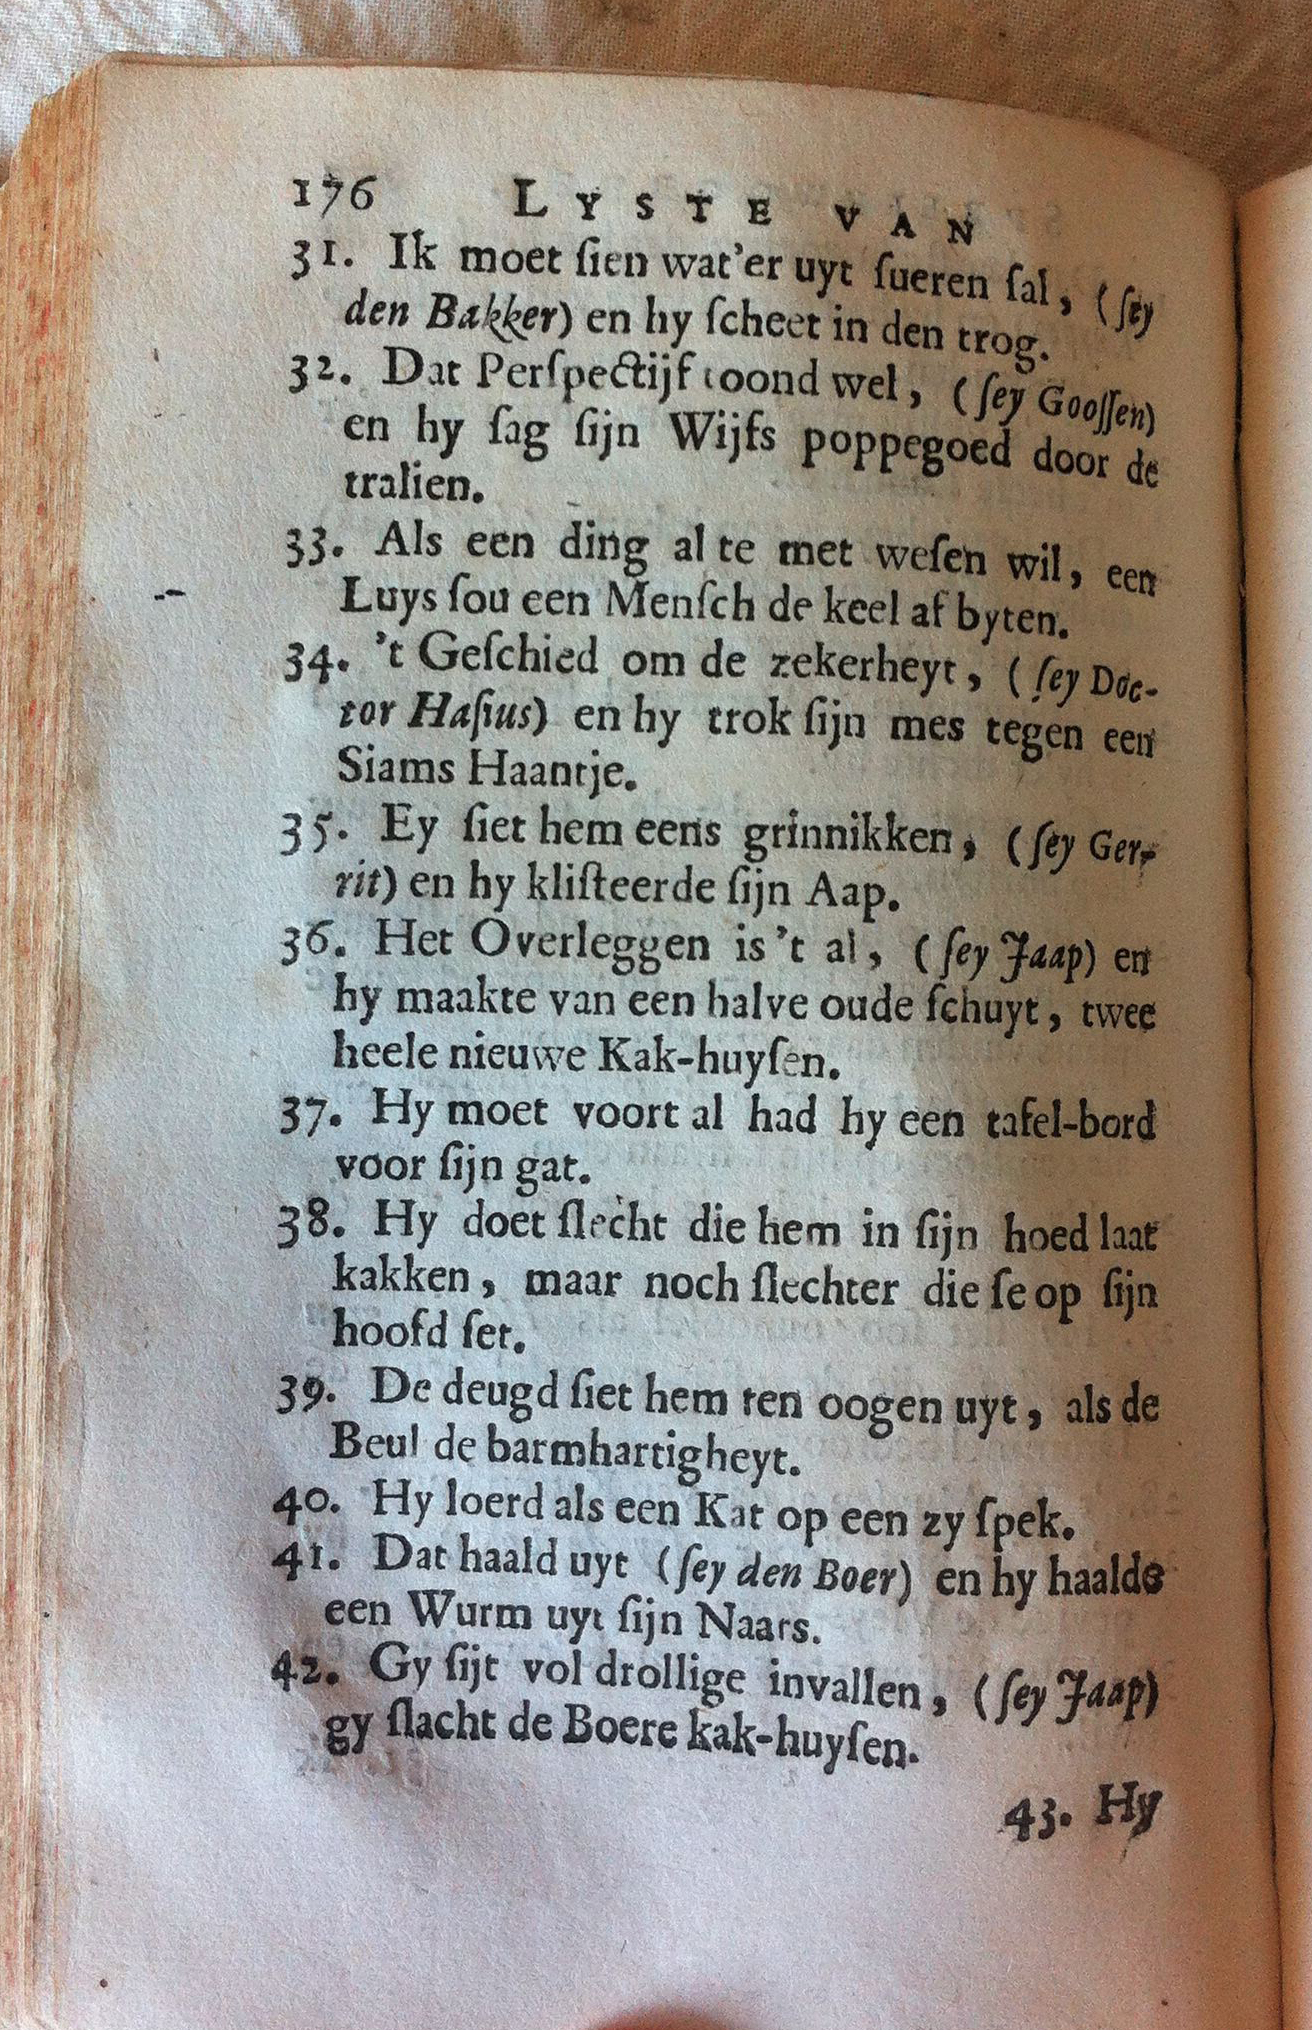 176 LYSTE VAN
31. Ik moet ſien wat'er uyt ſueren ſal, (ſey
den Bakker) en hy ſcheet in den trog.
32. Dat Perſpectijf toond wel, (ſey Gooſſen)
en hy ſag ſijn Wijfs poppegoed door de
tralien.
33. Als een ding al te met weſen wil, een
Luys ſou een Menſch de keel af byten.
34. 't Geſchied om de zekerheyt, (ſey Doc-
tor Haſius) en hy trok ſijn mes tegen een
Siams Haantje.
35. Ey ſiet hem eens grinnikken, (ſey Ger-
rit) en hy kliſteerde ſijn Aap.
36. Het Overleggen is 't al, (ſey Jaap) en
hy maakte van een halve oude ſchuyt, twee
heele nieuwe Kak-huyſen.
37. Hy moet voort al had hy een tafel-bord
voor ſijn gat.
38. Hy doet ſlecht die hem in ſijn hoed laat
kakken, maar noch ſlechter die ſe op ſijn
hoofd ſet.
39. De deugd ſiet hem ten oogen uyt, als de
Beul de barmhartigheyt.
40. Hy loerd als een Kat op een zy ſpek.
41. Dat haald uyt (ſey den Boer) en hy haalde
een Wurm uyt ſijn Naars.
42. Gy ſijt vol drollige invallen, (ſey Jaap)
gy ſlacht de Boere kak-huyſen.
43. Hy